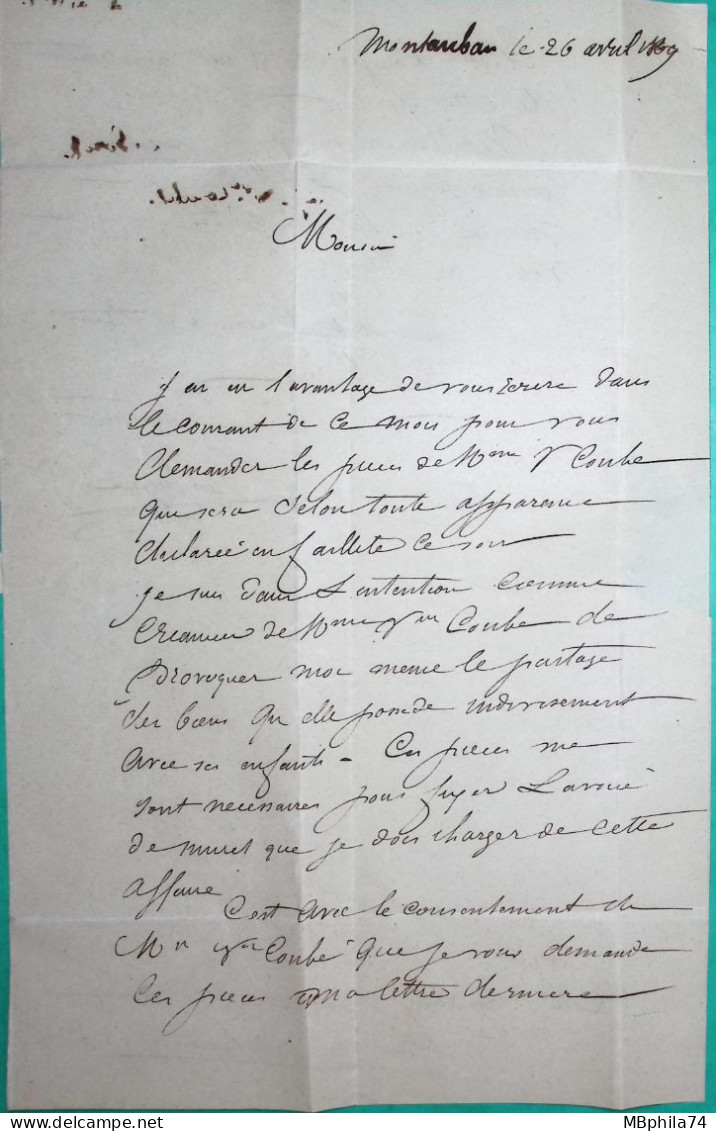 Montauban le 26 avril 1869
Monsieur
J'ai eu l'avantage de vous Ecrire dans
le courant de ce mois pour vous
demander les pieces de Mme Ve Coube
qui sera selon toute apparence
declarée en faillite ce soir
je suis dans L'entention comme
Creancier de Mme Ve Coube de
provoquer moi meme le partage
des biens qu elle possede indivisement
avec ses enfants - Ces pieces me
sont necessaires pour fixer Lavoué
de muret que je dois charger de cette
affaire
C'est avec le consentement de
Mme Ve Coube que je vous demande
Ces pieces ma lettre derniere
MBphila74